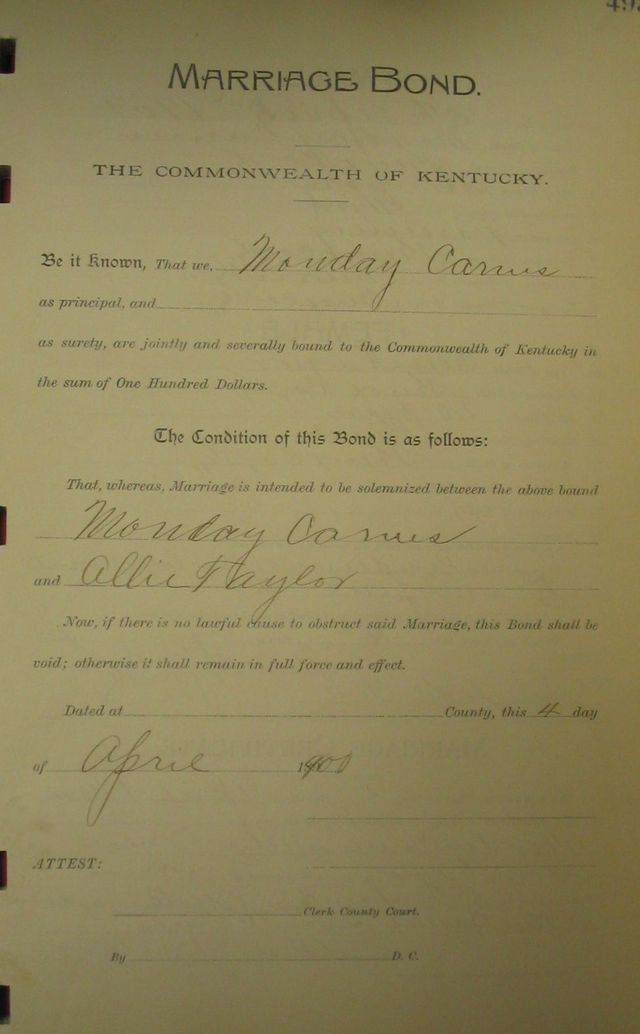 MARRIAGE BOND.
THE COMMONWEALTH OF KENTUCKY.
Be it Known, That we, Monday Carnes
as principal, and
as surety, are jointly and severally bound to the Commonwealth of Kentucky in
the sum of One Hundred Dollars.
The Condition of this Bond is as follows:
That, whereas, Marriage is intended to be solemnized between the above bound
Monday Carnes
and Allie Taylor
Now, if there is no lawful cause to obstruct said Marriage, this Bond shall be
void; otherwise it shall remain in full force and effect.
Dated at County, this 4 day
of April 1900
ATTEST:
Clerk County Court.
By D. C.